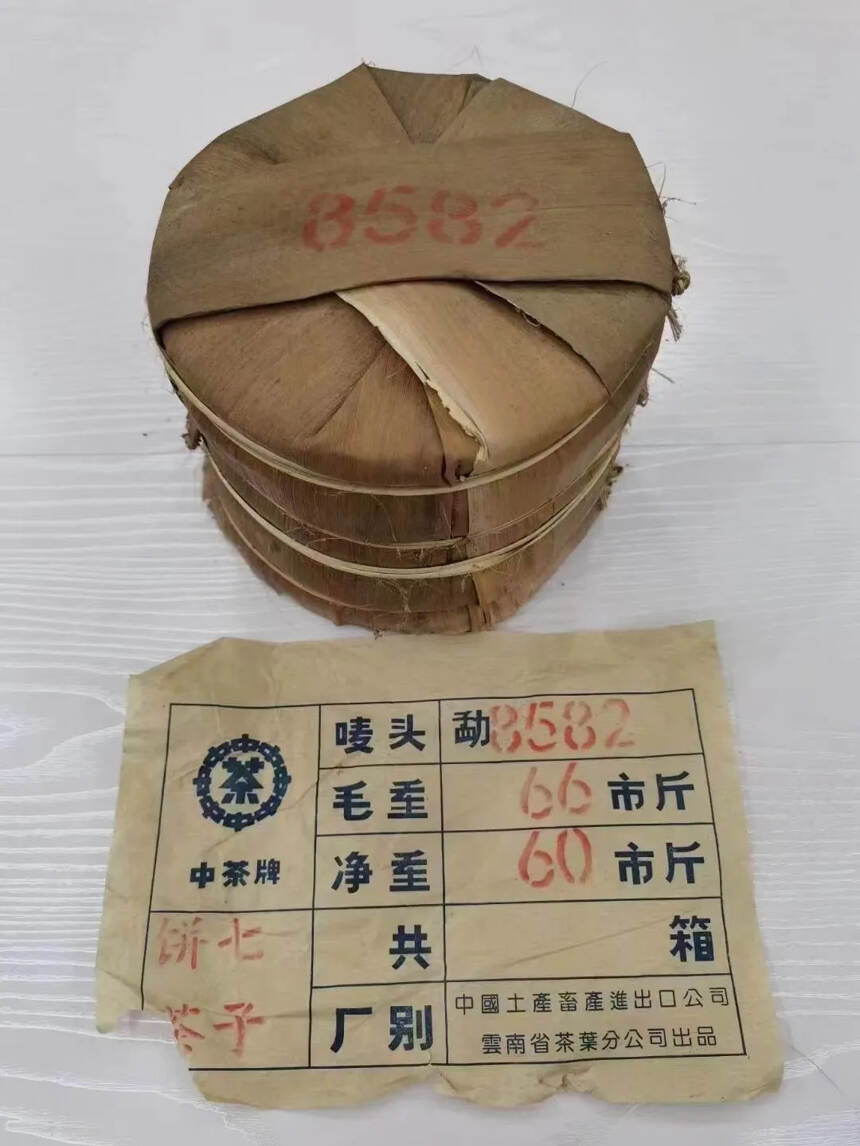 8582
茶
中茶牌
唛头 勐8582
毛重 66市斤
净重 60市斤
七子
饼茶
共 箱
厂别 中國土產畜產進出口公司
雲南省茶葉分公司出品